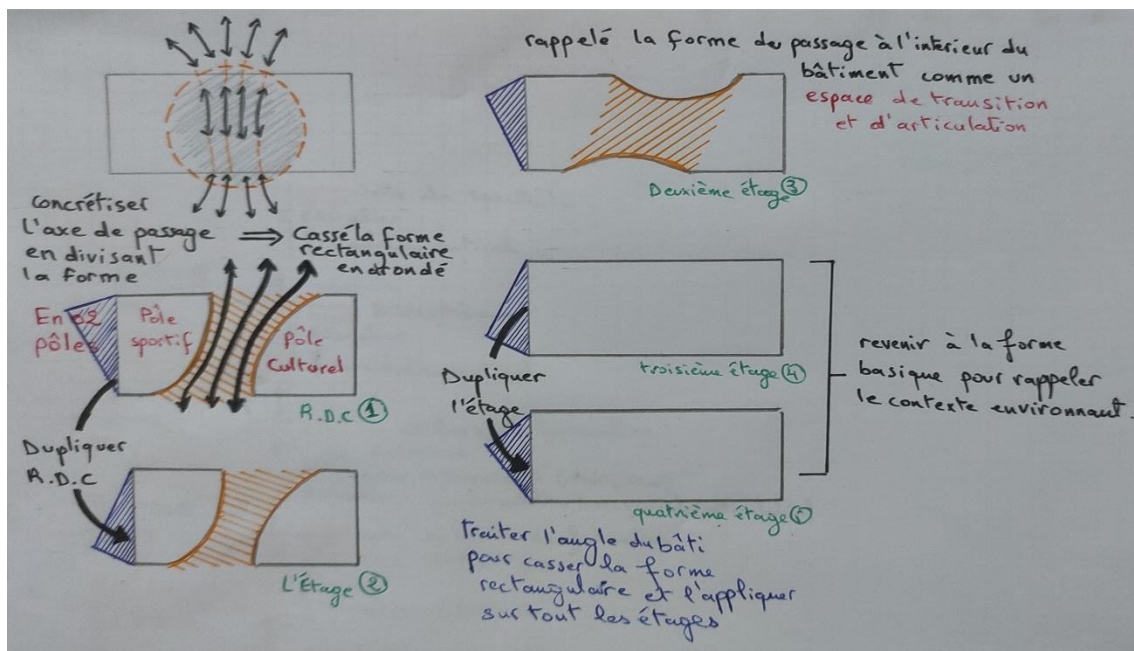 concrétiser
l'axe de passage
en divisant
la forme
⇒ Cassé la forme
rectangulaire
en arondé
En 02
pôles
Pôle
sportif
Pôle
Culturel
R.D.C ①
Dupliquer
R.D.C
L'Étage ②
rappelé la forme du passage à l'interieur du
bâtiment comme un
espace de transition
et d'articulation
Deuxième étage ③
Dupliquer
l'étage
troisième étage ④
quatrième étage ⑤
revenir à la forme
basique pour rappeler
le contexte environnant.
traiter l'angle du bâti
pour casser la forme
rectangulaire et l'appliquer
sur tout les étages